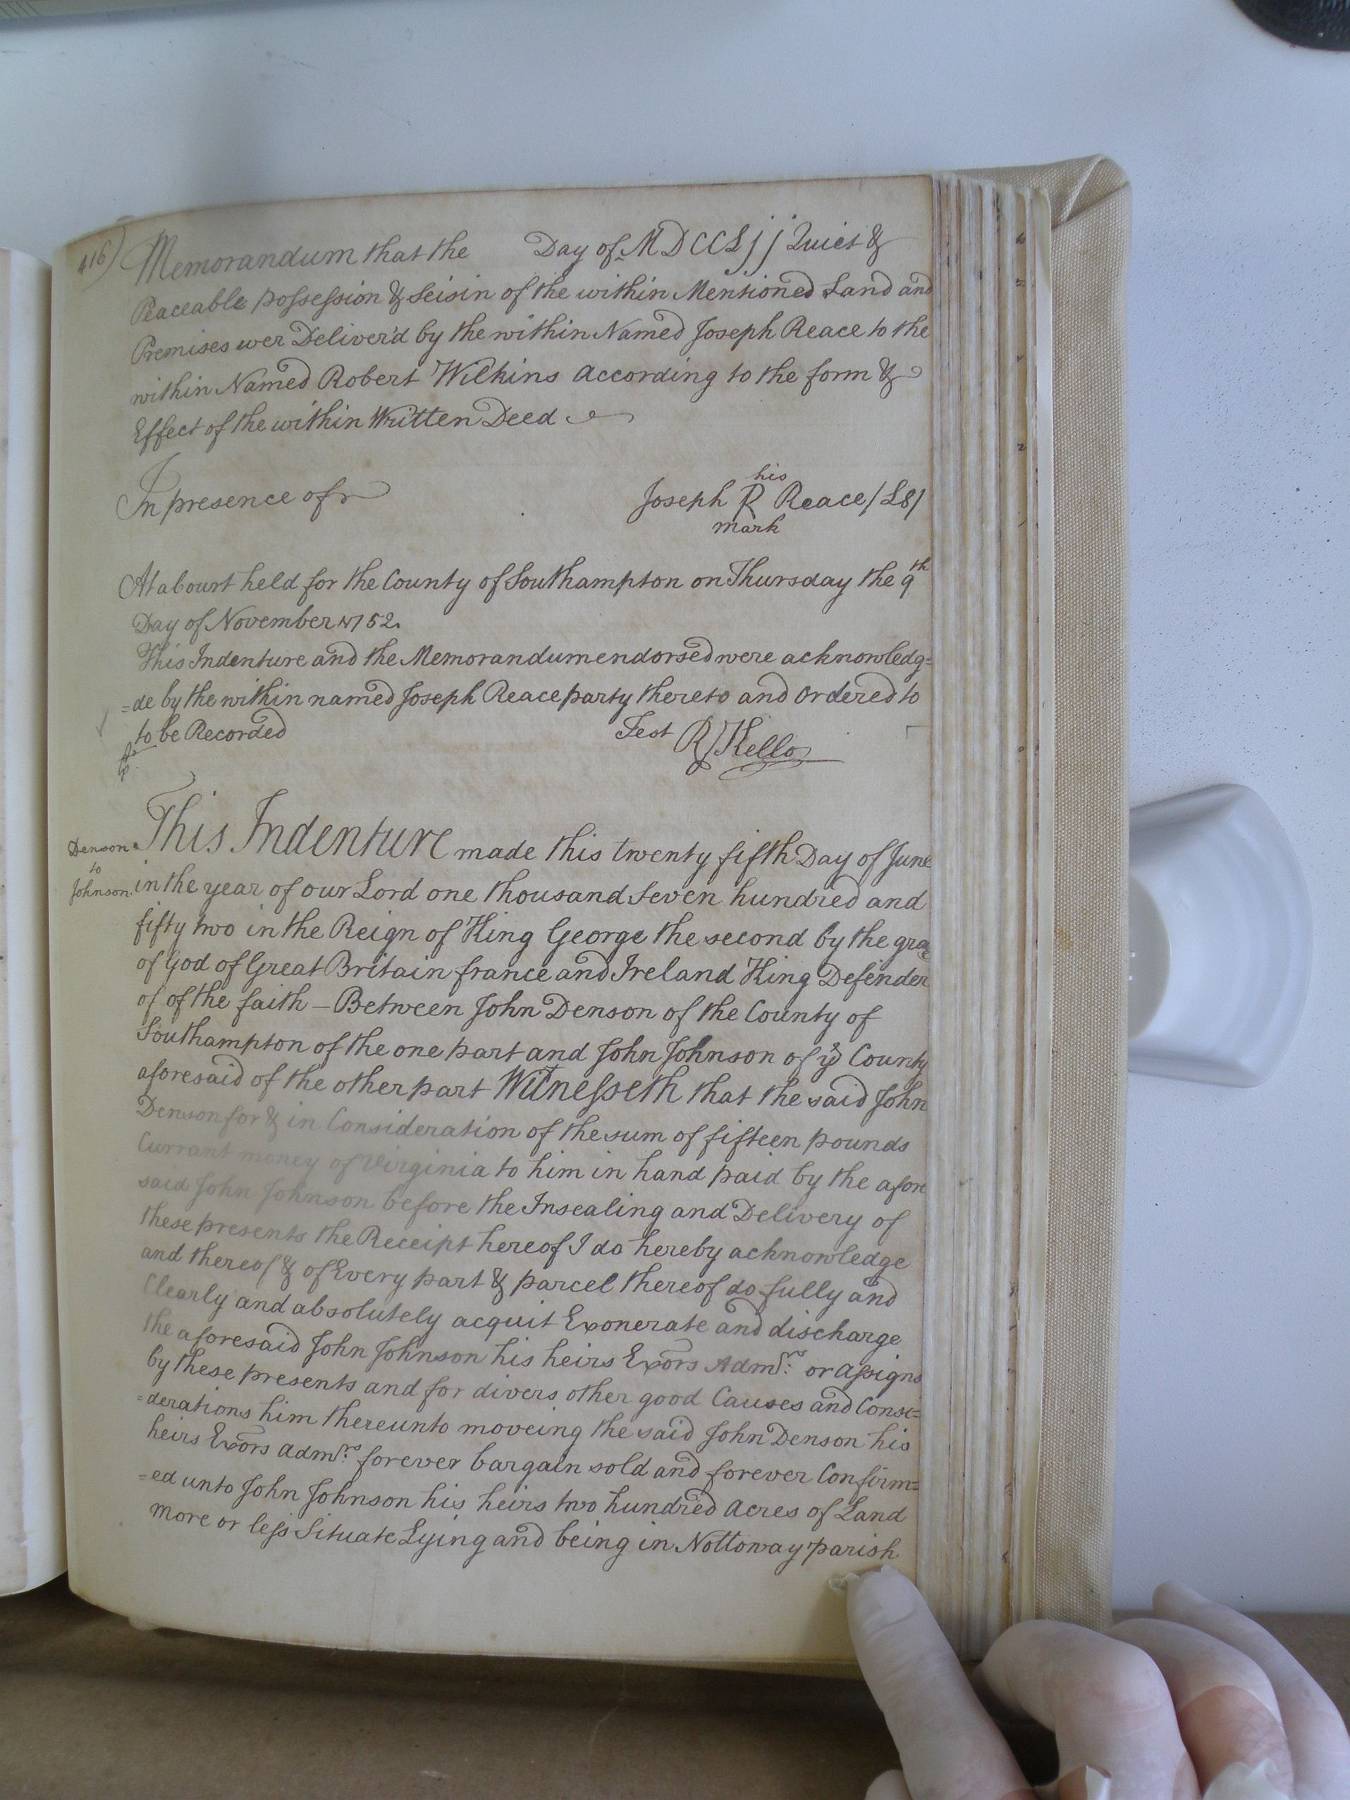 416)
Memorandum that the Day of MDCCLjj Quiet &
Peaceable possession & Seisin of the within Mentioned Land and
Premises wer Deliver'd by the within Named Joseph Reace to the
within Named Robert Wilkins according to the form &
Effect of the within Written Deed
In presence of
his
Joseph R Reace /LS/
mark
At a Court held for the County of Southampton on Thursday the 9th
Day of November 1752.
This Indenture and the Memorandum endorsed were acknowledg=
=de by the within named Joseph Reace party thereto and Ordered to
to be Recorded Test R Kello
Denson
to
Johnson
This Indenture made this twenty fifth Day of June
in the year of our Lord one thousand Seven hundred and
fifty two in the Reign of King George the second by the grace
of god of Great Britain france and Ireland King Defender
of of the faith – Between John Denson of the County of
Southampton of the one part and John Johnson of ye County
aforesaid of the other part Witnesseth that the said John
Denson for & in Consideration of the sum of fifteen pounds
Currant money of Virginia to him in hand paid by the afore
said John Johnson before the Insealing and Delivery of
these presents the Receipt hereof I do hereby acknowledge
and thereof & of Every part & parcel thereof do fully and
Clearly and absolutely acquit Exonerate and discharge
the aforesaid John Johnson his heirs Exors Admrs: or assigns
by these presents and for divers other good Causes and Consi=
=derations him thereunto moveing the said John Denson his
heirs Exors admrs: forever bargain sold and forever Confirm=
=ed unto John Johnson his heirs two hundred acres of Land
more or less Situate Lying and being in Nottoway parish